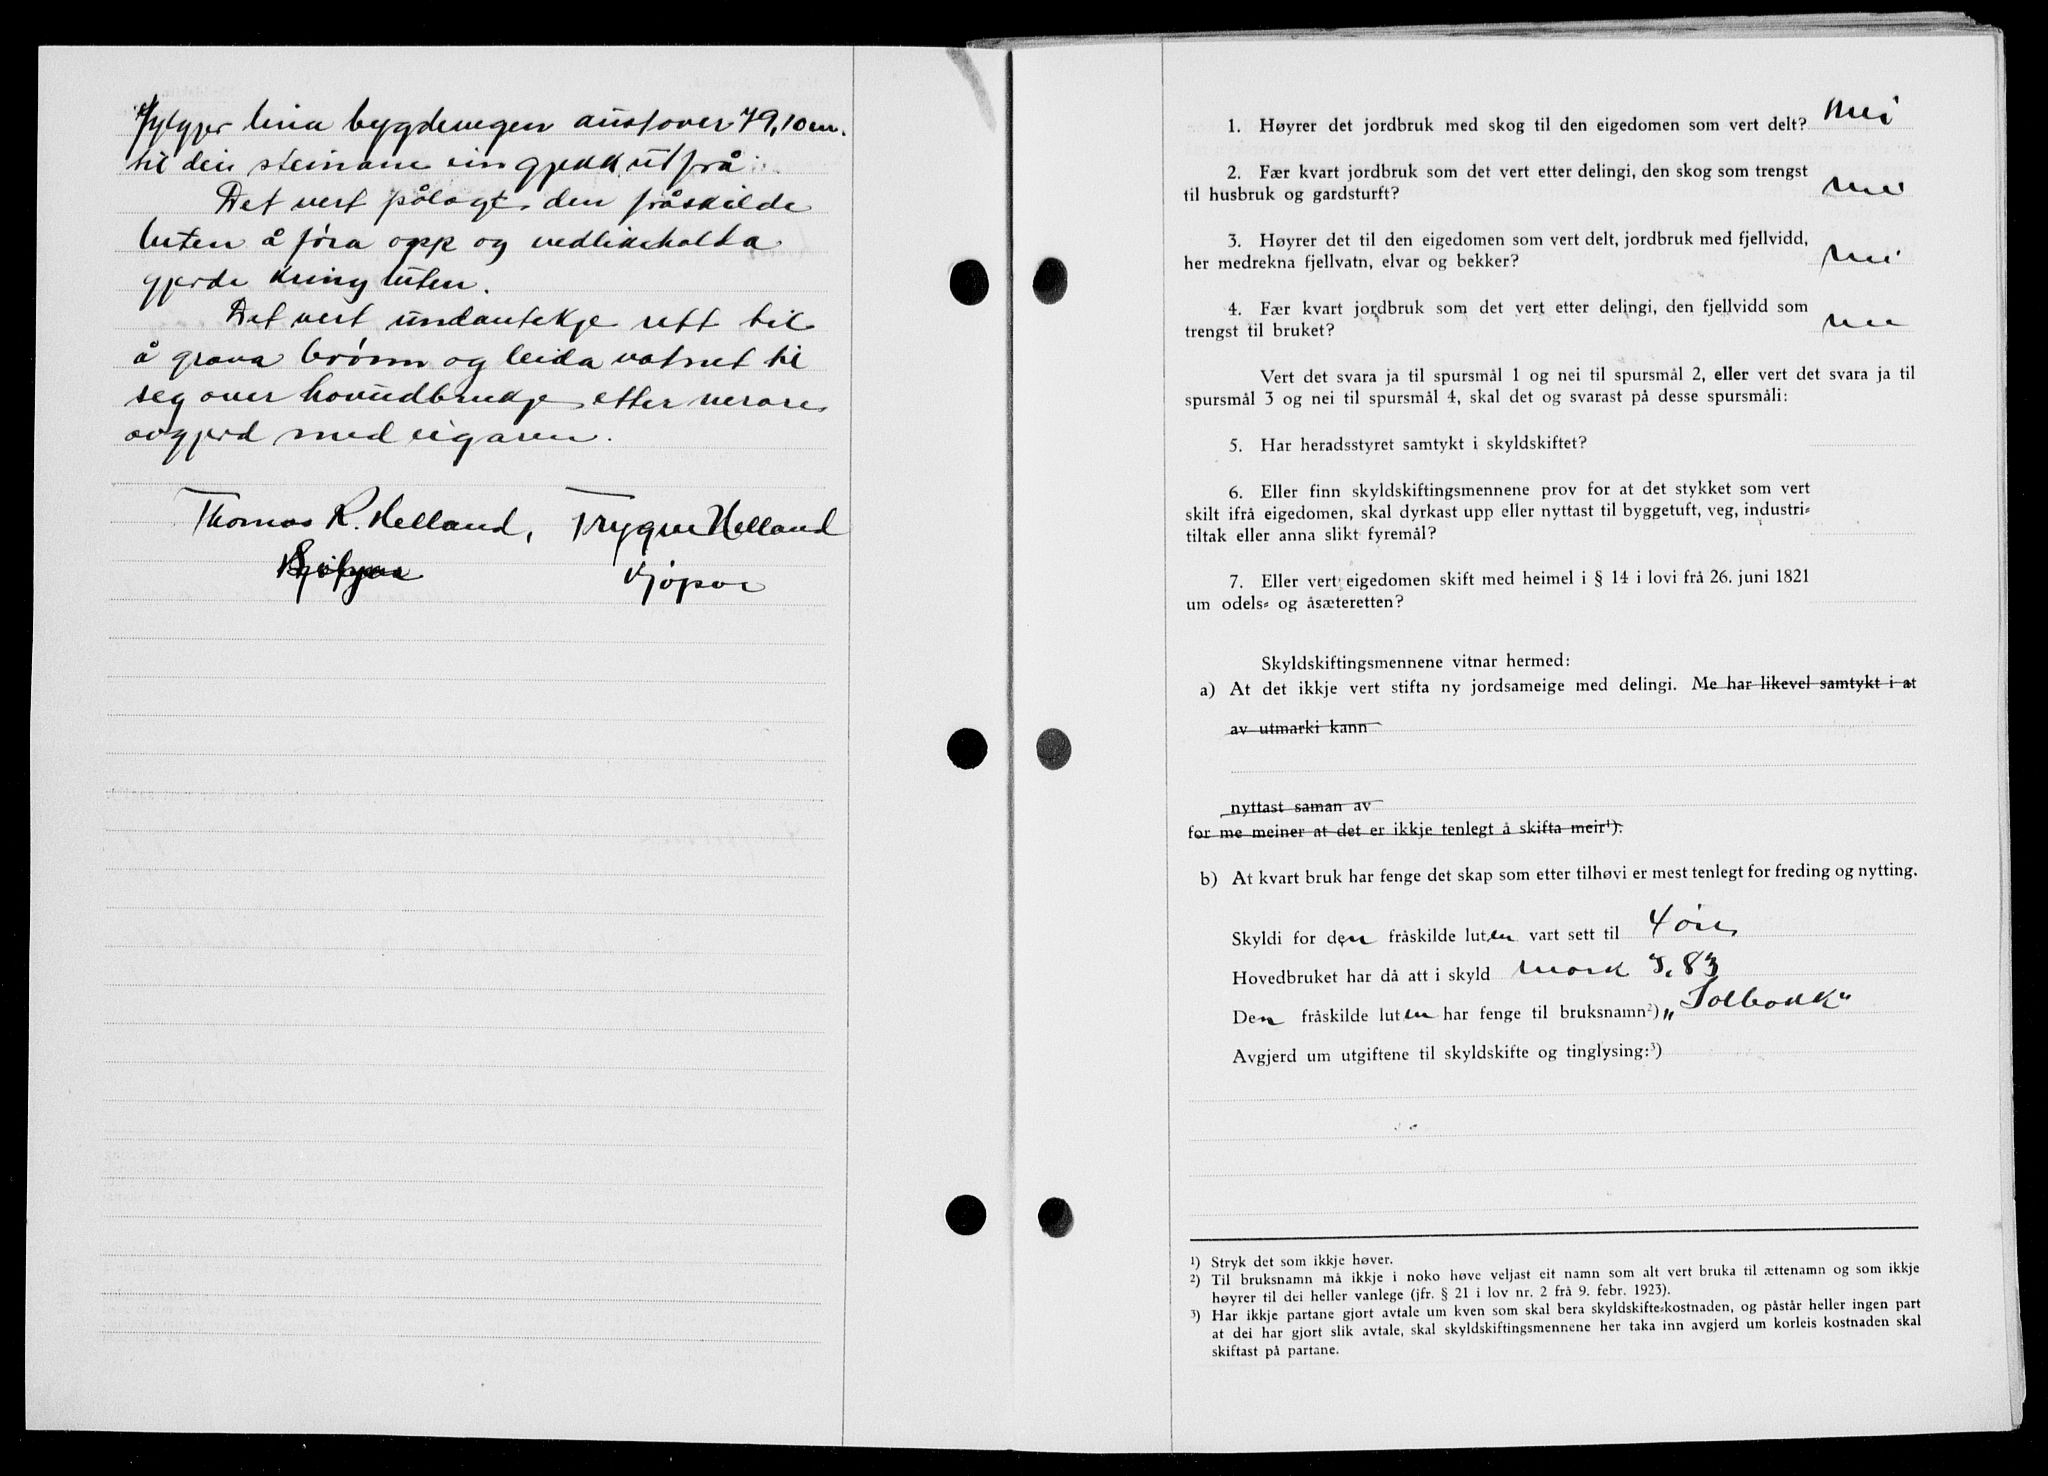 fylgjer lina bygdevegen austover 79,10 m.
til dei steinane ein gjekk ut frå.
Det vert pålagt den fråskilde
luten å föra opp og vedlikehalda
gjerde kring luten.
Det vert undanteke rett til
å grava brönn og leida vatnet til
seg over hovudbruket etter nerare
avgjerd med eigaren.
Thomas R. Helland, Trygve Helland
Seljar kjöpar
1. Høyrer det jordbruk med skog til den eigedomen som vert delt? nei
2. Fær kvart jordbruk som det vert etter delingi, den skog som trengst
til husbruk og gardsturft? nei
3. Høyrer det til den eigedomen som vert delt, jordbruk med fjellvidd,
her medrekna fjellvatn, elvar og bekker? nei
4. Fær kvart jordbruk som det vert etter delingi, den fjellvidd som
trengst til bruket? nei
Vert det svara ja til spursmål 1 og nei til spursmål 2, eller vert det svara ja til
spursmål 3 og nei til spursmål 4, skal det og svarast på desse spursmåli:
5. Har heradsstyret samtykt i skyldskiftet?
6. Eller finn skyldskiftingsmennene prov for at det stykket som vert
skilt ifrå eigedomen, skal dyrkast upp eller nyttast til byggetuft, veg, industri-
tiltak eller anna slikt fyremål?
7. Eller vert eigedomen skift med heimel i § 14 i lovi frå 26. juni 1821
um odels- og åsæteretten?
Skyldskiftingsmennene vitnar hermed:
a) At det ikkje vert stifta ny jordsameige med delingi. Me har likevel samtykt i at
av utmarki kann
nyttast saman av
for me meiner at det er ikkje tenlegt å skifta meir¹).
b) At kvart bruk har fenge det skap som etter tilhøvi er mest tenlegt for freding og nytting.
Skyldi for den fråskilde luten vart sett til 4 öre
Hovedbruket har då att i skyld mark 3,83
Den fråskilde luten har fenge til bruksnamn²) „Solbakk“
Avgjerd um utgiftene til skyldskifte og tinglysing:³)
¹) Stryk det som ikkje høver.
²) Til bruksnamn må ikkje i noko høve veljast eit namn som alt vert bruka til ættenamn og som ikkje
høyrer til dei heller vanlege (jfr. § 21 i lov nr. 2 frå 9. febr. 1923).
³) Har ikkje partane gjort avtale um kven som skal bera skyldskifte-kostnaden, og påstår heller ingen part
at dei har gjort slik avtale, skal skyldskiftingsmennene her taka inn avgjerd um korleis kostnaden skal
skiftast på partane.